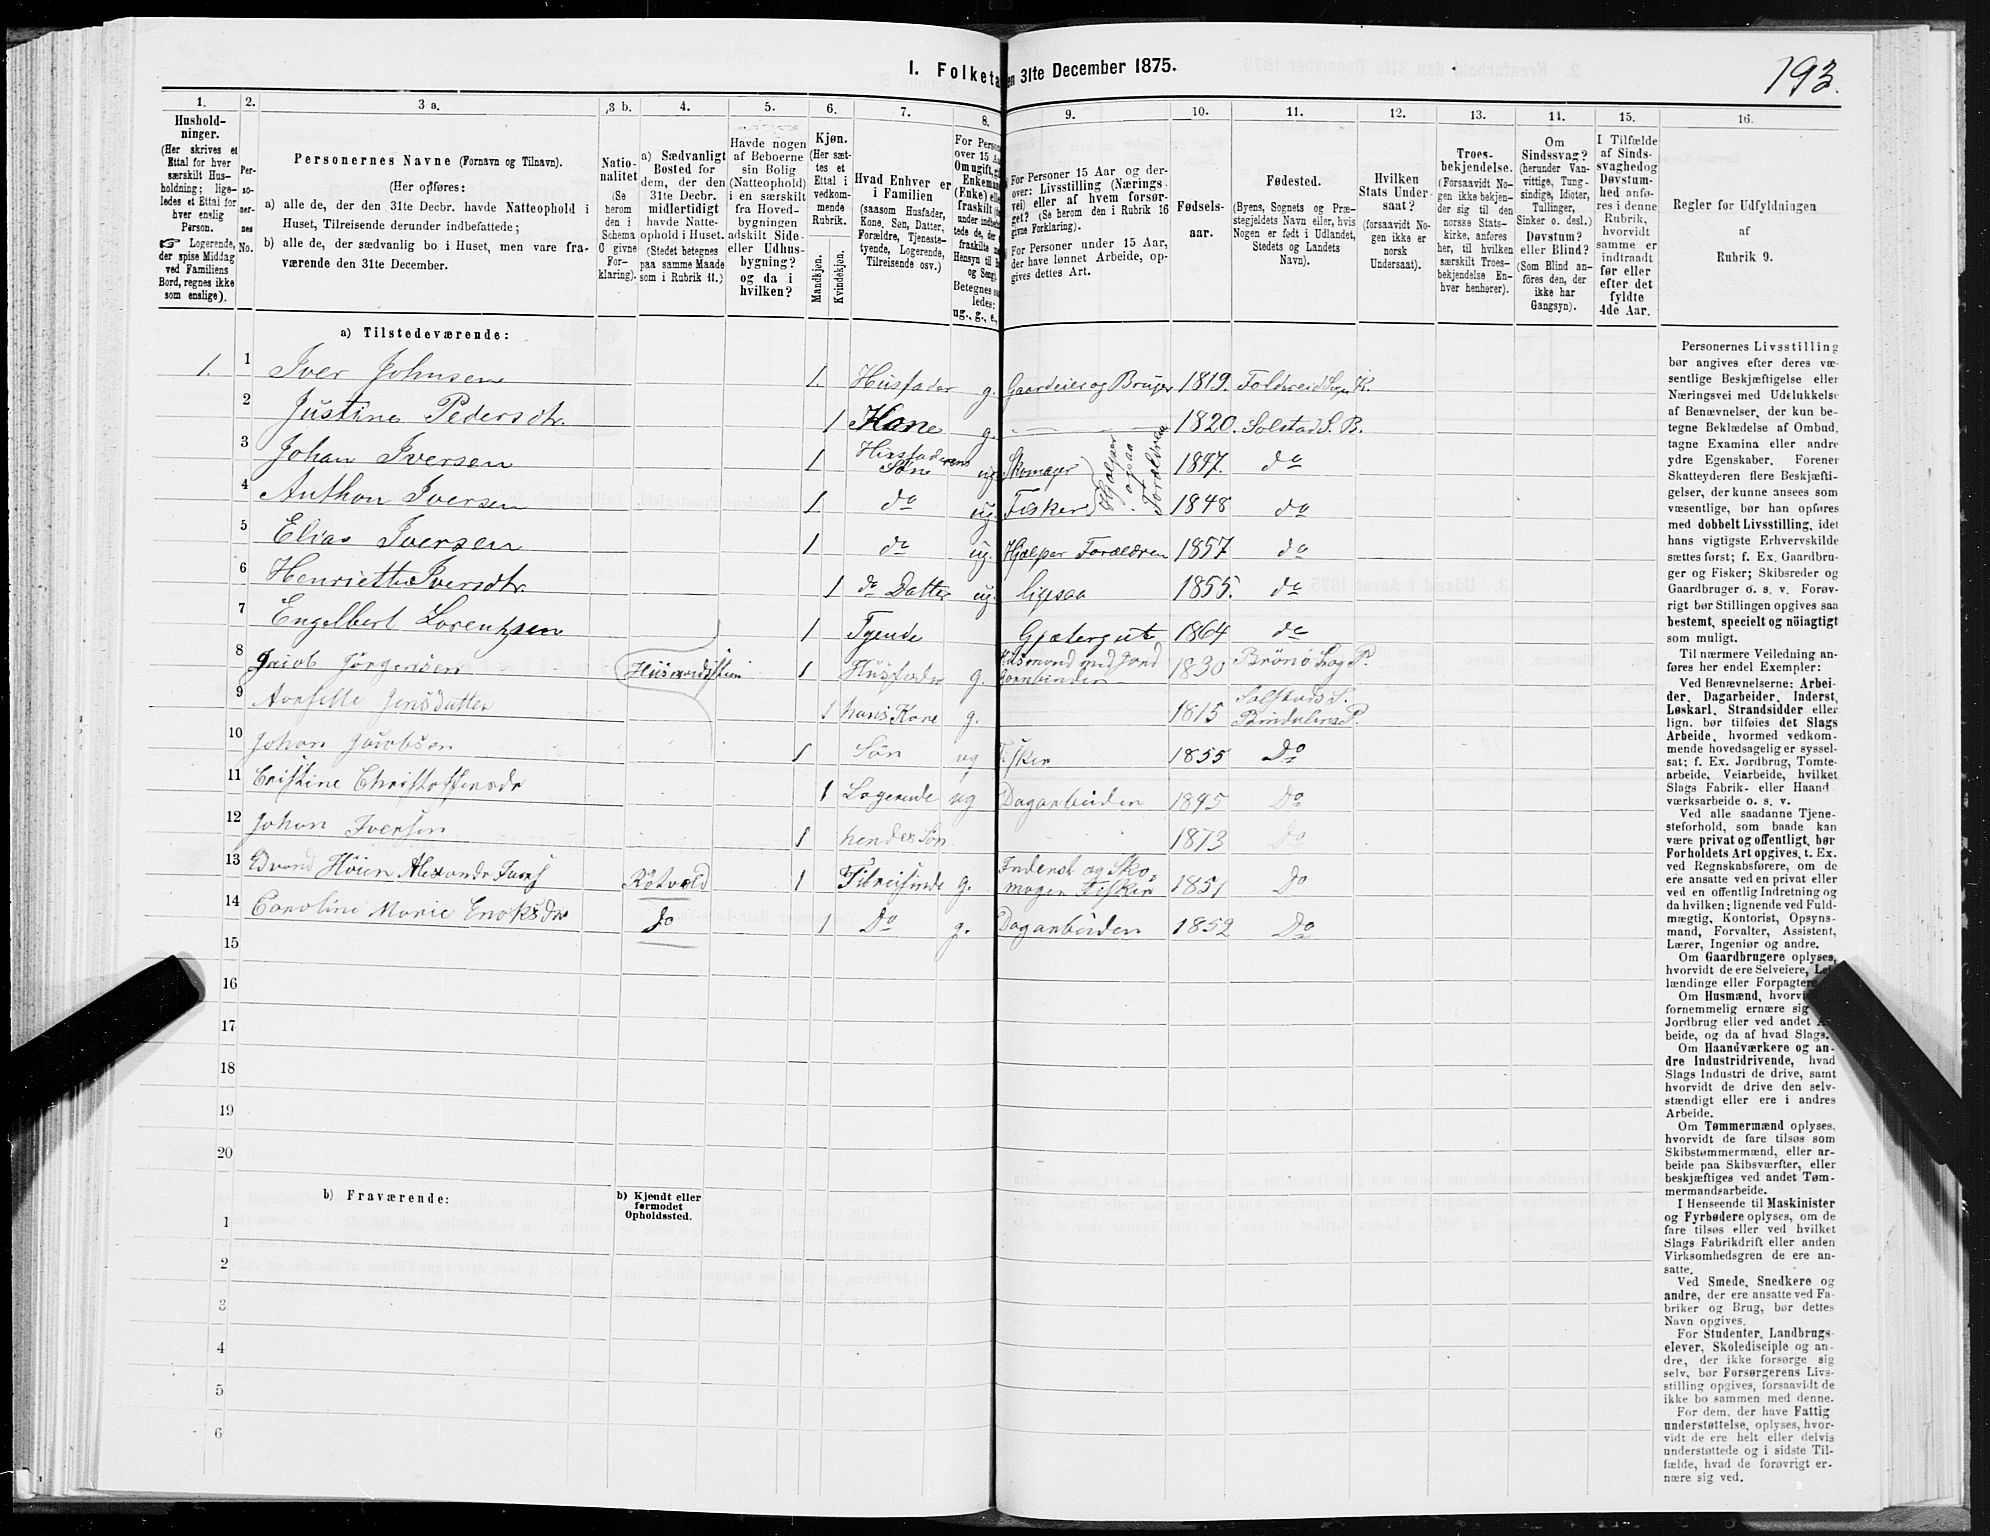 193.
I. Folketa en 31te December 1875.
1. 2. 3 a. 3 b. 4. 5. 6. 7. 8. 9. 10. 11. 12. 13. 14. 15. 16.
Hushold-
ninger.
(Her skrives et
Ettal for hver
særskilt Hus-
holdning; lige-
ledes et Ettal for
hver enslig
Person.
☞ Logerende,
der spise Middag
ved Familiens
Bord, regnes ikke
som enslige).
Per-
so-
ner-
nes
No.
Personernes Navne (Fornavn og Tilnavn).
(Her opføres:
a) alle de, der den 31te Decbr. havde Natteophold i
Huset, Tilreisende derunder indbefattede;
b) alle de, der sædvanlig bo i Huset, men vare fra-
værende den 31te December.
Natio-
nalitet
(Se
herom
den i
Schema
C givne
For-
klaring).
a) Sædvanligt
Bosted for
dem, der den
31te Decbr.
midlertidigt
havde Natte-
ophold i Huset.
(Stedet betegnes
paa samme Maade
som i Rubrik 11.)
Havde nogen
af Beboerne
sin Bolig
(Natteophold)
i en særskilt
fra Hoved-
bygningen
adskilt Side-
eller Udhus-
bygning?
og da i
hvilken?
Kjøn.
(Her sæt-
tes et
Ettal i
vedkom-
mende
Rubrik.
Mandkjøn.
Kvindekjøn.
Hvad Enhver er
i Familien
(saasom Husfader,
Kone, Søn, Datter,
Forældre, Tjeneste-
tyende, Logerende,
Tilreisende osv.)
For Person
over 15 Aa
Om ugift, gif
Enkemand
(Enke) elle
fraskilt
Betegnes saa
ledes:
ug., g., e.,
For Personer 15 Aar og der-
over: Livsstilling (Nærings-
vei) eller af hvem forsør-
get? (Se herom den i Rubrik 16
givne Forklaring).
For Personer under 15 Aar,
der have lønnet Arbeide, op-
gives dettes Art.
Fødsels-
aar.
Fødested.
(Byens, Sognets og Præ-
stegjeldets Navn eller, hvis
Nogen er født i Udlandet,
Stedets og Landets
Navn).
Hvilken
Stats Under-
saat?
(forsaavidt No-
gen ikke er
norsk
Undersaat).
Troes-
bekjendelse.
(Forsaavidt No-
gen ikke bekjen-
der sig til den
norske Stats-
kirke, anføres
her, til hvilken
særskilt Troes-
bekjendelse En-
hver henhører).
Om
Sindssvag?
(herunder Van-
vittige, Tung-
sindige, Idioter,
Tullinger,
Sinker o. desl.)
Døvstum?
eller Blind?
(Som Blind an-
føres den, der
ikke har
Gangsyn).
I Tilfælde
af Sinds-
svaghed og
Døvstum-
hed anfø-
res i denne
Rubrik,
hvorvidt
samme er
indtraadt
før eller
efter det
fyldte
4de Aar.
Regler for Udfyldningen
af
Rubrik 9.
a) Tilstedeværende:
1. 1 Iver Johnsen 1. Husfader g. Gaardeier og Bruger 1819. Foldereid Sogn K.
2 Justine Pedersdtr. 1 Kone g. 1820. Solstad S. B.
3 Johan Iversen 1 Husfaderens Søne ug Skomager 1847. do
Hjælper ogsaa Forældren
4 Anthon Iversen 1 do ug. Fisker 1848 do
5 Elias Iversen 1 do ug. Hjælper Forældren 1857 do
6 Henriette Iversdtr. 1 do Datter ug. ligesaa 1855. do
7 Engelbert Lorentzsen 1 Tyende Gjætergut 1864 do
8 Jacob Jørgensen Husmandsstein 1 Husfader g. Husmand med Jord 1830 Brönö Sog P.
9 Jensdatter 1 hans Kone g. 1815 S. P.
10 Johan Jacobsen 1 Søn ug Fisker 1855 Do
11 Cristine Christoffersdr 1 Logerende ug Dagarbeiden 1845 Do
12 Johan Iversen 1 hendes Søn 1873 Do
13 Høien Alexander 1 Tilreisende g. Inderst og Skomager Fisker 1851 Do
14 Caroline Marie Enoksdr do 1 Do g. Dagarbeiden 1852 Do
15
16
17
18
19
20
b) Fraværende:
b) Kjendt eller
formodet
Opholdssted.
1
2
3
4
5
6
Personernes Livsstilling
bør angives efter deres væ-
sentlige Beskjæftigelse eller
Næringsvei med Udelukkelse
af Benævnelser, der kun be-
tegne Beklædelse af Ombud,
tagne Examina eller andre
ydre Egenskaber. Forener
Skatteyderen flere Beskjæfti-
gelser, der kunne ansees som
væsentlige, bør han opføres
med dobbelt Livsstilling, idet
hans vigtigste Erhvervskilde
sættes først; f. Ex. Gaardbru-
ger og Fisker; Skibsreder og
Gaardbruger o. s. v. Forøv-
rigt bør Stillingen opgives saa
bestemt, specielt og nöiagtigt
som muligt.
Til nærmere Veiledning an-
føres her endel Exempler:
Ved Benævnelserne: Arbei-
der, Dagarbeider, Inderst,
Løskarl, Strandsidder eller
lign. bør tilføies det Slags
Arbeide, hvormed vedkom-
mende hovedsagelig er syssel-
sat; f. Ex. Jordbrug, Tomte-
arbeide, Veiarbeide, hvilket
Slags Fabrik- eller Haand
værksarbeide o. s. v.
Ved alle saadanne Tjene-
steforhold, som baade kan
være privat og offentligt, bør
Forholdets Art opgives, t. Ex.
ved Regnskabsførere, om de
ere ansatte ved en privat eller
ved en offentlig Indretning og
da hvilken; lignende ved Fuld-
mægtig, Kontorist, Opsyns-
mand, Forvalter, Assistent,
Lærer, Ingeniør og andre.
Om Gaardbrugere oplyses,
hvorvidt de ere Selveiere, Lei
lændinge eller Forpagtere
Om Husmænd, hvorvi
fornemmelig ernære sig
Jordbrug eller ved andet Ar
beide, og da af hvad Slags.
Om Haandværkere og an-
dre Industridrivende, hvad
Slags Industri de drive, samt
hvorvidt de drive den selv-
stændigt eller ere i andres
Arbeide.
Om Tømmermænd oplyses,
hvorvidt de fare tilsøs som
Skibstømmermænd, eller ar-
beide paa Skibsværfter, eller
beskjæftiges ved andet Tøm-
mermandsarbeide.
I Henseende til Maskinister
og Fyrbødere oplyses, om de
fare tilsøs eller ved hvilket
Slags Fabrikdrift eller anden
Virksomhedsgren de ere an-
satte.
Ved Smede, Snedkere og
andre, der ere ansatte ved Fa-
briker og Brug, bør dettes
Navn opgives.
For Studenter, Landbrugs-
elever, Skoledisciple og an-
dre, der ikke forsørge sig
selv, bør Forsørgerens Livs-
stilling opgives, forsaavidt de
ikke bo sammen med denne.
For dem, der have Fattig
understøttelse, oplyses, hvor-
vidt de ere helt eller delvis
understøttede og i sidste Til-
fælde, hvad de forøvrigt er-
nære sig ved.